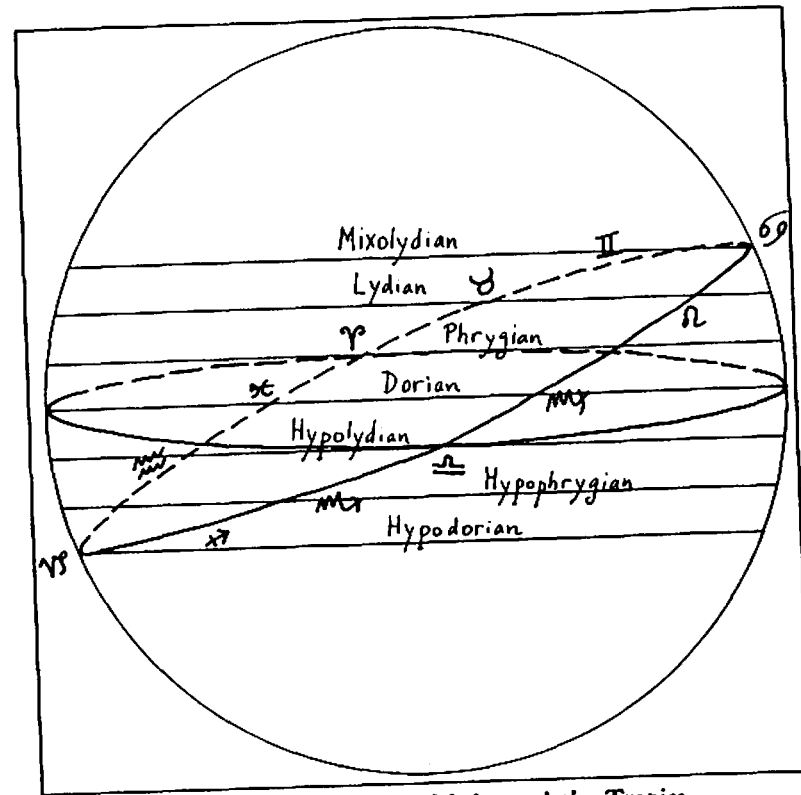 Mixolydian
♊
♋
Lydian
♉
♌
♈
Phrygian
♓
Dorian
♍
Hypolydian
♒
♎
Hypophrygian
♏
♐
Hypodorian
♑